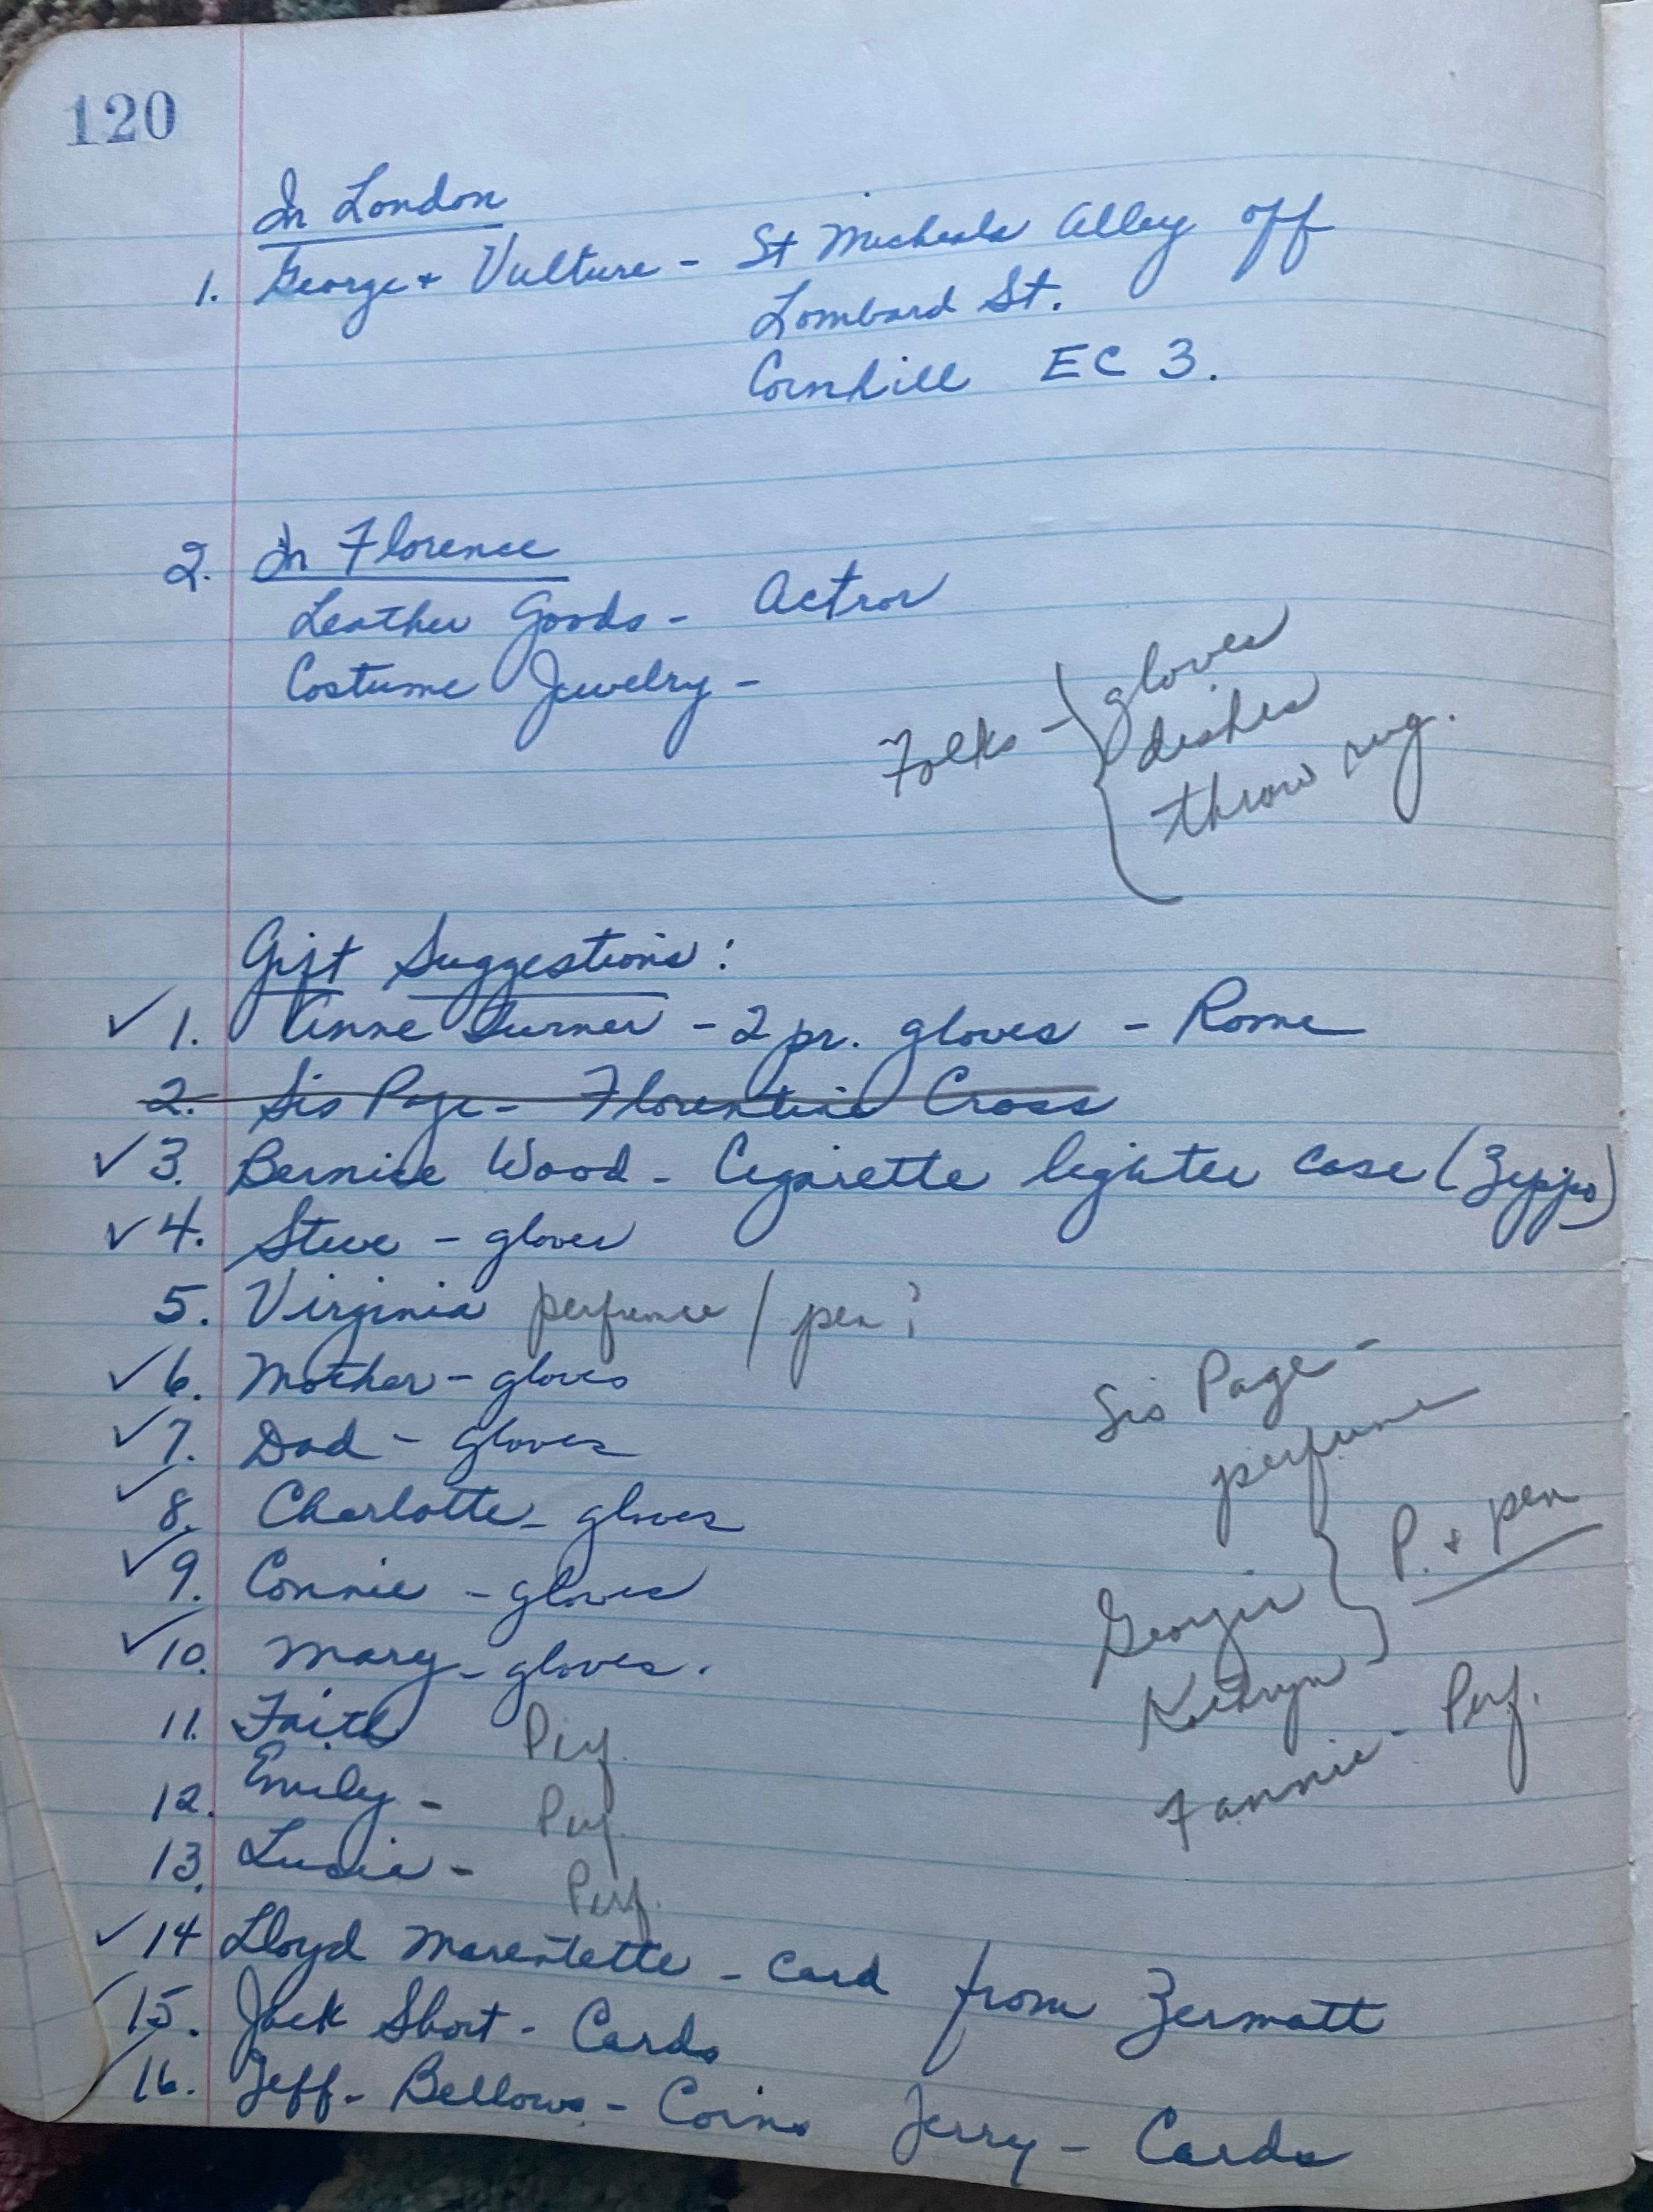 120
In London
1. George + Vulture - St Micheals Alley off
Lombard St.
Cornhill EC 3.
2. In Florence
Leather Goods -
Costume Jewelry -
Folks - { gloves
dishes
throw rug.
Gift Suggestions:
✓ 1. Anne Turner - 2 pr. gloves - Rome
2. Sis Page - Florentine Cross
✓ 3. Bernice Wood - Cigarette lighter case (Zippo)
✓ 4. Steve - gloves
5. Virginia perfume / pen?
✓ 6. Mother - gloves
✓ 7. Dad - gloves
✓ 8. Charlotte - gloves
✓ 9. Connie - gloves
✓ 10. Mary - gloves.
11. Faith Perf.
12. Emily - Perf.
13. - Perf.
Sis Page -
perfume
Georgia
Kathryn } P. + pen
Fannie - Perf.
✓ 14 Lloyd Marentette - card from Zermatt
✓ 15. Jack Short - Cards
✓ 16. Jeff - Bellows - Coins Jerry - Cards